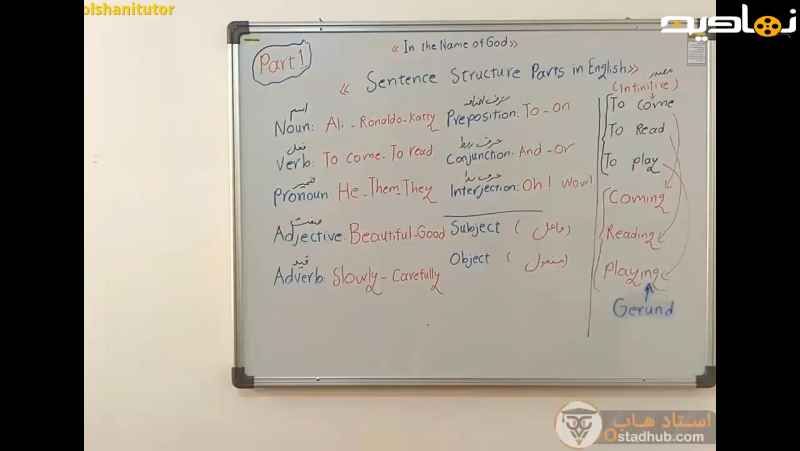 olshanitutor
نماديه
« In the Name of God »
Part 1
« Sentence Structure Parts in English »
اسم
Noun: Ali - Ronaldo - Katty
فعل
Verb: To come - To read
ضمیر
Pronoun He - Them - They
صفت
Adjective: Beautiful - Good
قید
Adverb: Slowly - Carefully
حرف اضافه
Preposition: To - on
حرف ربط
Conjunction: And - or
حرف ندا
Interjection: Oh! wow!
Subject ( فاعل )
Object ( مفعول )
مصدر
(Infinitive)
To come
To Read
To play
Coming
Reading
Playing
Gerund
استاد هاب
Ostadhub.com